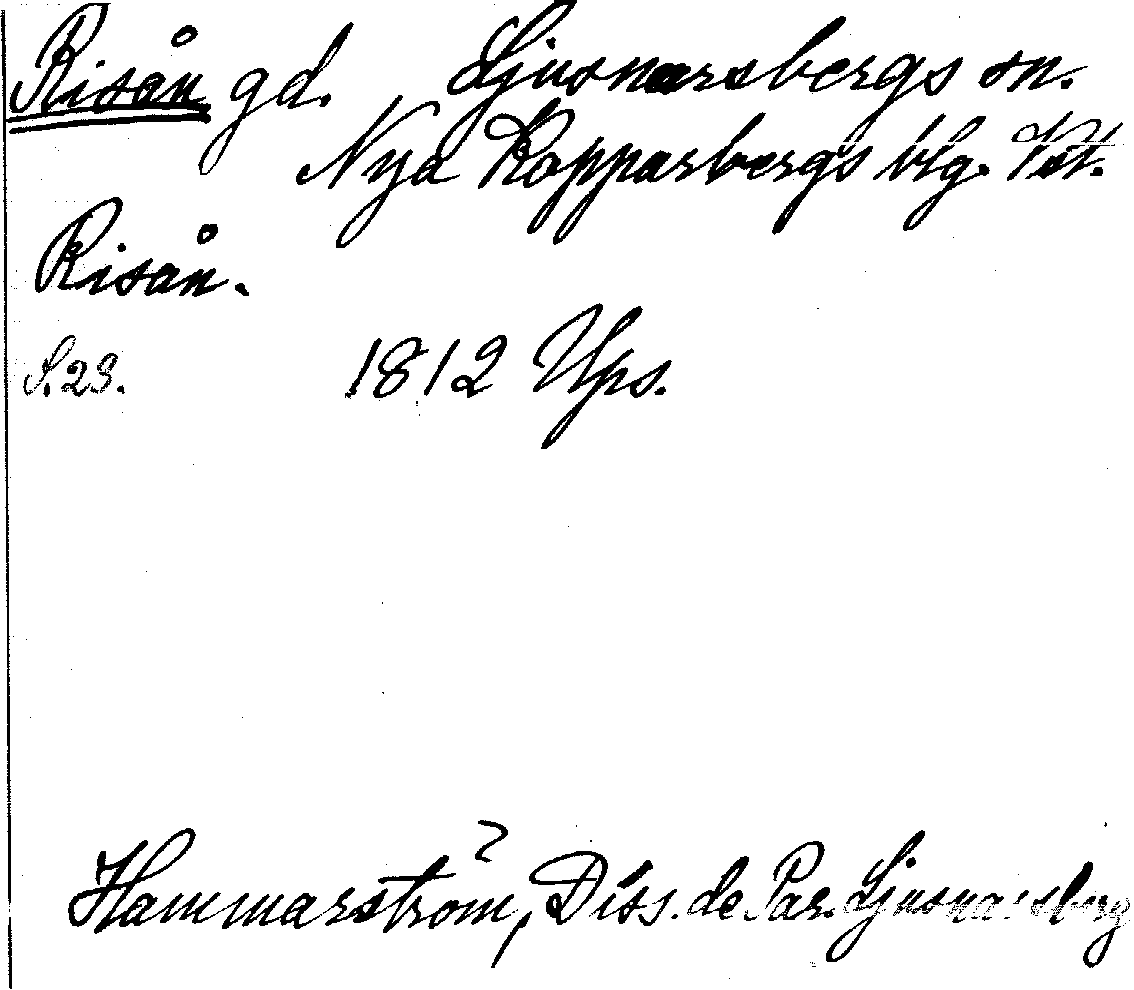 Risån gd. Ljusnarsbergs sn.
Nya Kopparbergs blg. Vst.
Risån.
S. 23. 1812 Ups.
Hammarström, Diss. de Par. Ljusnarsberg